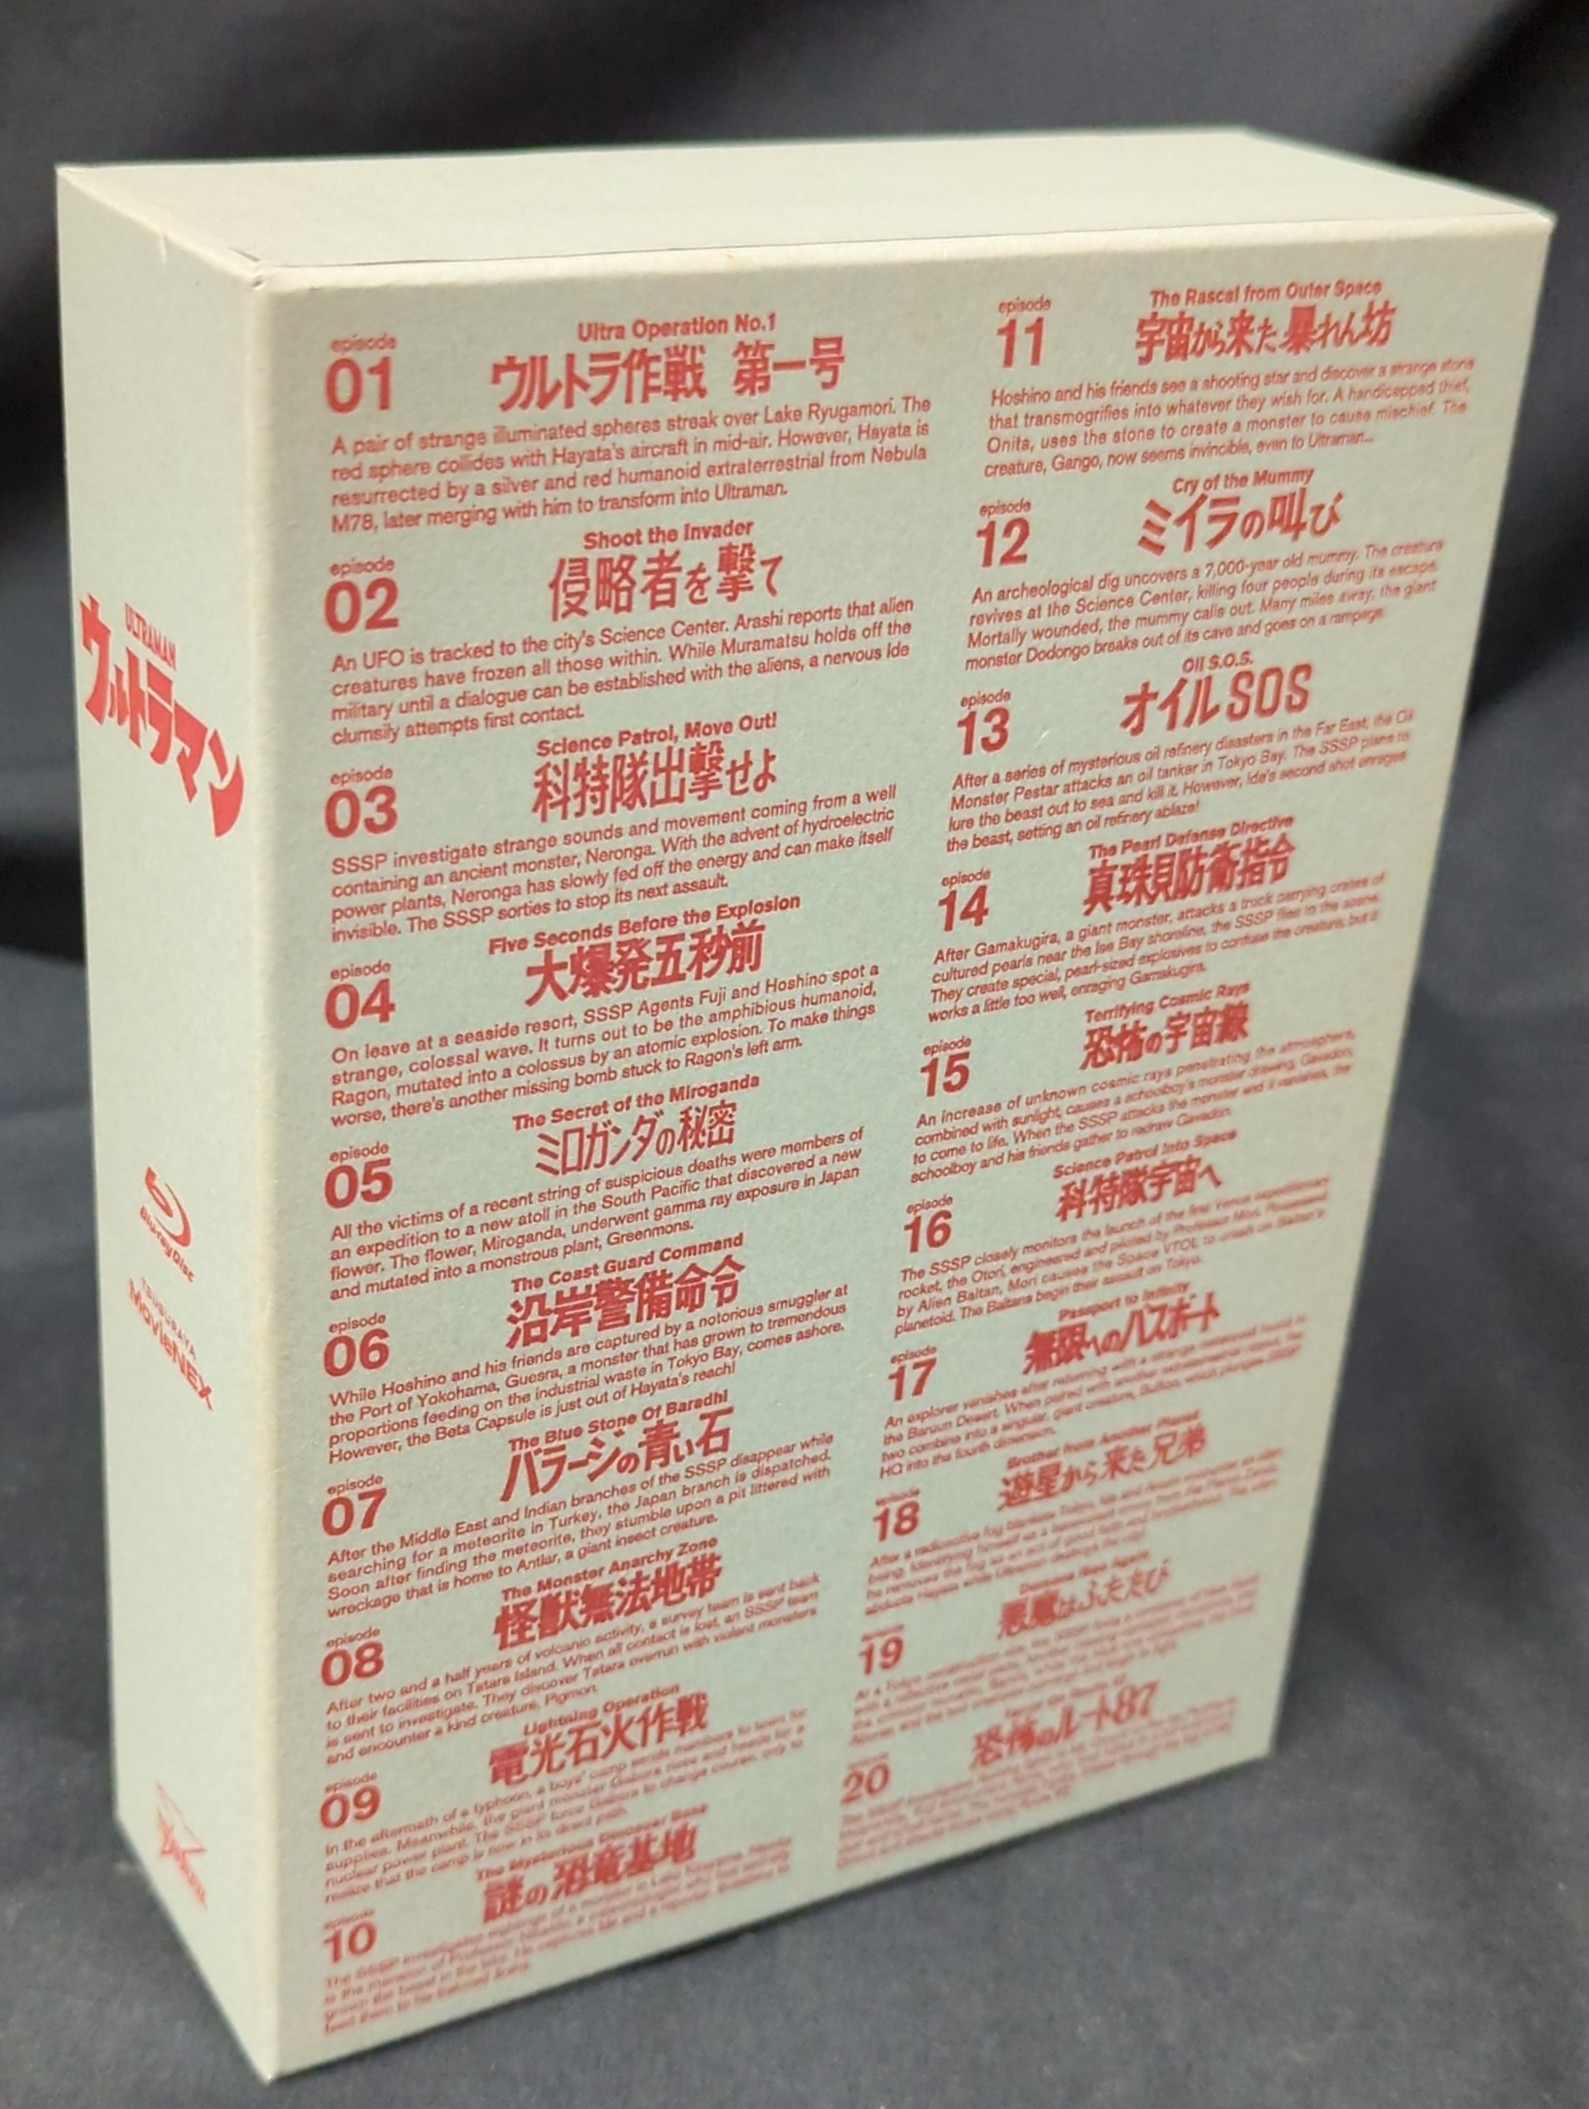 ULTRAMAN
ウルトラマン
Blu-ray Disc
TSUBURAYA
MovieNEX
episode
01
Ultra Operation No.1
ウルトラ作戦 第一号
A pair of strange illuminated spheres streak over Lake Ryugamori. The
red sphere collides with Hayata's aircraft in mid-air. However, Hayata is
resurrected by a silver and red humanoid extraterrestrial from Nebula
M78, later merging with him to transform into Ultraman.
episode
02
Shoot the Invader
侵略者を撃て
An UFO is tracked to the city's Science Center. Arashi reports that alien
creatures have frozen all those within. While Muramatsu holds off the
military until a dialogue can be established with the aliens, a nervous Ide
clumsily attempts first contact.
episode
03
Science Patrol, Move Out!
科特隊出撃せよ
SSSP investigate strange sounds and movement coming from a well
containing an ancient monster, Neronga. With the advent of hydroelectric
power plants, Neronga has slowly fed off the energy and can make itself
invisible. The SSSP sorties to stop its next assault.
episode
04
Five Seconds Before the Explosion
大爆発五秒前
On leave at a seaside resort, SSSP Agents Fuji and Hoshino spot a
strange, colossal wave. It turns out to be the amphibious humanoid,
Ragon, mutated into a colossus by an atomic explosion. To make things
worse, there's another missing bomb stuck to Ragon's left arm.
episode
05
The Secret of the Miroganda
ミロガンダの秘密
All the victims of a recent string of suspicious deaths were members of
an expedition to a new atoll in the South Pacific that discovered a new
flower. The flower, Miroganda, underwent gamma ray exposure in Japan
and mutated into a monstrous plant, Greenmons.
episode
06
The Coast Guard Command
沿岸警備命令
While Hoshino and his friends are captured by a notorious smuggler at
the Port of Yokohama, Guesra, a monster that has grown to tremendous
proportions feeding on the industrial waste in Tokyo Bay, comes ashore.
However, the Beta Capsule is just out of Hayata's reach!
episode
07
The Blue Stone Of Baradhi
バラージの青い石
After the Middle East and Indian branches of the SSSP disappear while
searching for a meteorite in Turkey, the Japan branch is dispatched.
Soon after finding the meteorite, they stumble upon a pit littered with
wreckage that is home to Antlar, a giant insect creature.
episode
08
The Monster Anarchy Zone
怪獣無法地帯
After two and a half years of volcanic activity, a survey team is sent back
to their facilities on Tatara Island. When all contact is lost, an SSSP team
is sent to investigate. They discover Tatara overrun with violent monsters
and encounter a kind creature, Pigmon.
episode
09
Lightning Operation
電光石火作戦
In the aftermath of a typhoon, a boys' camp sends members to town for
supplies. Meanwhile, the giant monster Gabora rises and heads for a
nuclear power plant. The SSSP force Gabora to change course, only to
realize that the camp is now in its direct path.
episode
10
The Mysterious Dinosaur Base
謎の恐竜基地
episode
11
The Rascal from Outer Space
宇宙から来た暴れん坊
Hoshino and his friends see a shooting star and discover a strange stone
that transmogrifies into whatever they wish for. A handicapped thief,
Onita, uses the stone to create a monster to cause mischief. The
creature, Gango, now seems invincible, even to Ultraman...
episode
12
Cry of the Mummy
ミイラの叫び
An archeological dig uncovers a 7,000-year old mummy. The creature
revives at the Science Center, killing four people during its escape.
Mortally wounded, the mummy calls out. Many miles away, the giant
monster Dodongo breaks out of its cave and goes on a rampage.
episode
13
Oil S.O.S.
オイルSOS
After a series of mysterious oil refinery disasters in the Far East, the Oil
Monster Pestar attacks an oil tanker in Tokyo Bay. The SSSP plans to
lure the beast out to sea and kill it. However, Ide's second shot enrages
the beast, setting an oil refinery ablaze!
episode
14
The Pearl Defense Directive
真珠貝防衛指令
After Gamakugira, a giant monster, attacks a truck carrying crates of
cultured pearls near the Ise Bay shoreline, the SSSP flies to the scene.
They create special, pearl-sized explosives to confuse the creature, but it
works a little too well, enraging Gamakugira.
episode
15
Terrifying Cosmic Rays
恐怖の宇宙線
An increase of unknown cosmic rays penetrating the atmosphere,
combined with sunlight, causes a schoolboy's monster drawing, Gavadon,
to come to life. When the SSSP attacks the monster and it vanishes, the
schoolboy and his friends gather to redraw Gavadon.
episode
16
Science Patrol Into Space
科特隊宇宙へ
The SSSP closely monitors the launch of the first Venus expeditionary
rocket, the Otori, engineered and piloted by Professor Mori. Possessed
by Alien Baltan, Mori causes the Space VTOL to crash on Station's
planetoid. The Baltans begin their assault on Tokyo.
episode
17
Passport to Infinity
無限へのパスポート
An explorer vanishes after returning with a strange meteorite found in
the Baruun Desert. When paired with another
two combine into a singular, giant creature, Bullton, which plunges SSSP
HQ into the fourth dimension.
episode
18
Brother from Another Planet
遊星から来た兄弟
episode
19
Demons Rise Again
悪魔はふたたび
episode
20
恐怖のルート87